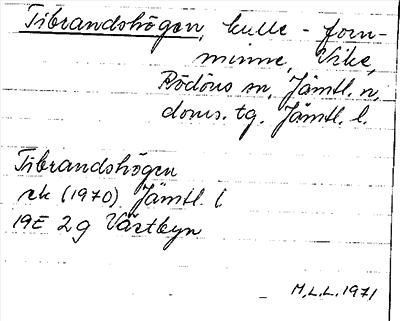 Tibrandshögen, kulle - forn-
minne, Vike,
Rödöns sn, Jämtl. n.
doms. tg. Jämtl. l.
Tibrandshögen
rk (1970) Jämtl. l
19E 2g Västbyn
M.L.L. 1971